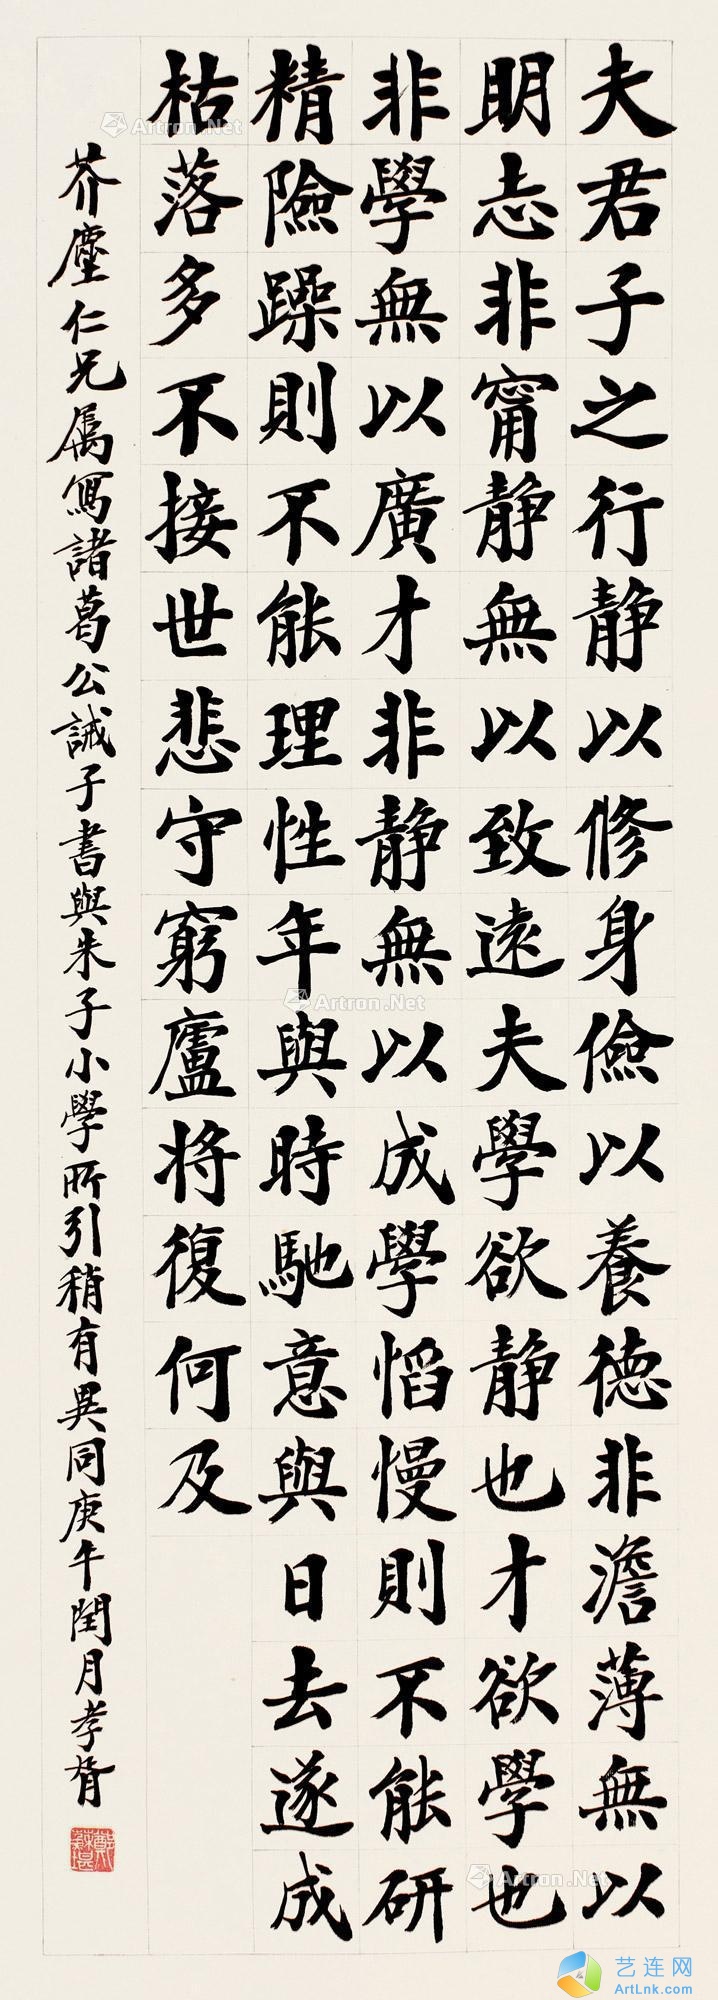 夫君子之行静以修身儉以養德非澹薄無以
明志非甯静無以致遠夫學欲静也才欲學也
非學無以廣才非静無以成學慆慢則不能研
精險躁則不能理性年與時馳意與日去遂成
枯落多不接世悲守窮廬将復何及
芥塵仁兄属寫諸葛公誡子書與朱子小學所引稍有異同庚午閏月孝胥
Artron.Net
Artron.Net
Artron.Net
艺连网
ArtLnk.com